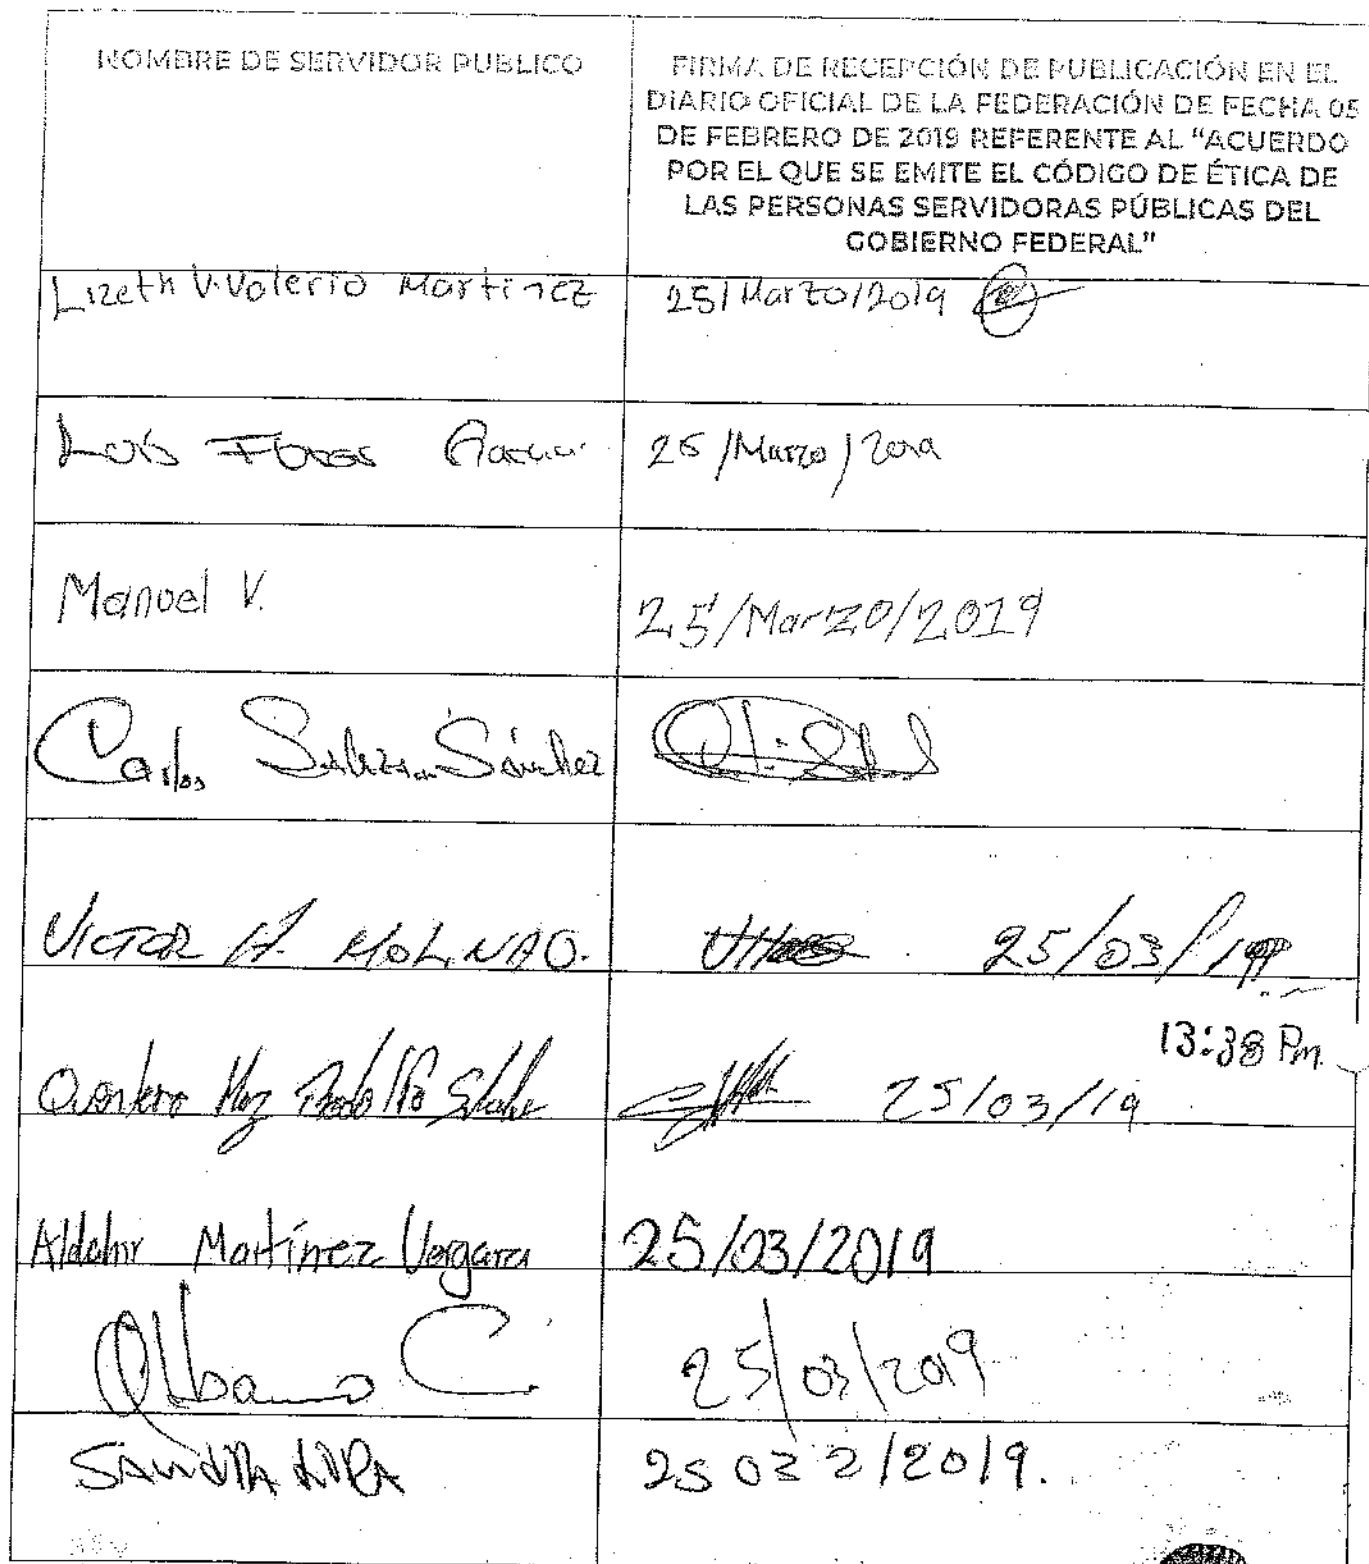 NOMBRE DE SERVIDOR PUBLICO
FIRMA DE RECEPCIÓN DE PUBLICACIÓN EN EL
DIARIO OFICIAL DE LA FEDERACIÓN DE FECHA 05
DE FEBRERO DE 2019 REFERENTE AL "ACUERDO
POR EL QUE SE EMITE EL CÓDIGO DE ÉTICA DE
LAS PERSONAS SERVIDORAS PÚBLICAS DEL
GOBIERNO FEDERAL"
Lizeth V. Valerio Martinez
25/Marzo/2019
Luis Flores
25/Marzo/2019
Manuel V.
25/Marzo/2019
Carlos Sánchez
VICTOR H. MOLINA O.
25/03/19
13:38 Pm.
Quintero
25/03/19
Aldahir Martínez Vergara
25/03/2019
Albano C.
25/03/2019
SANDRA LARA
25 03 2/2019.